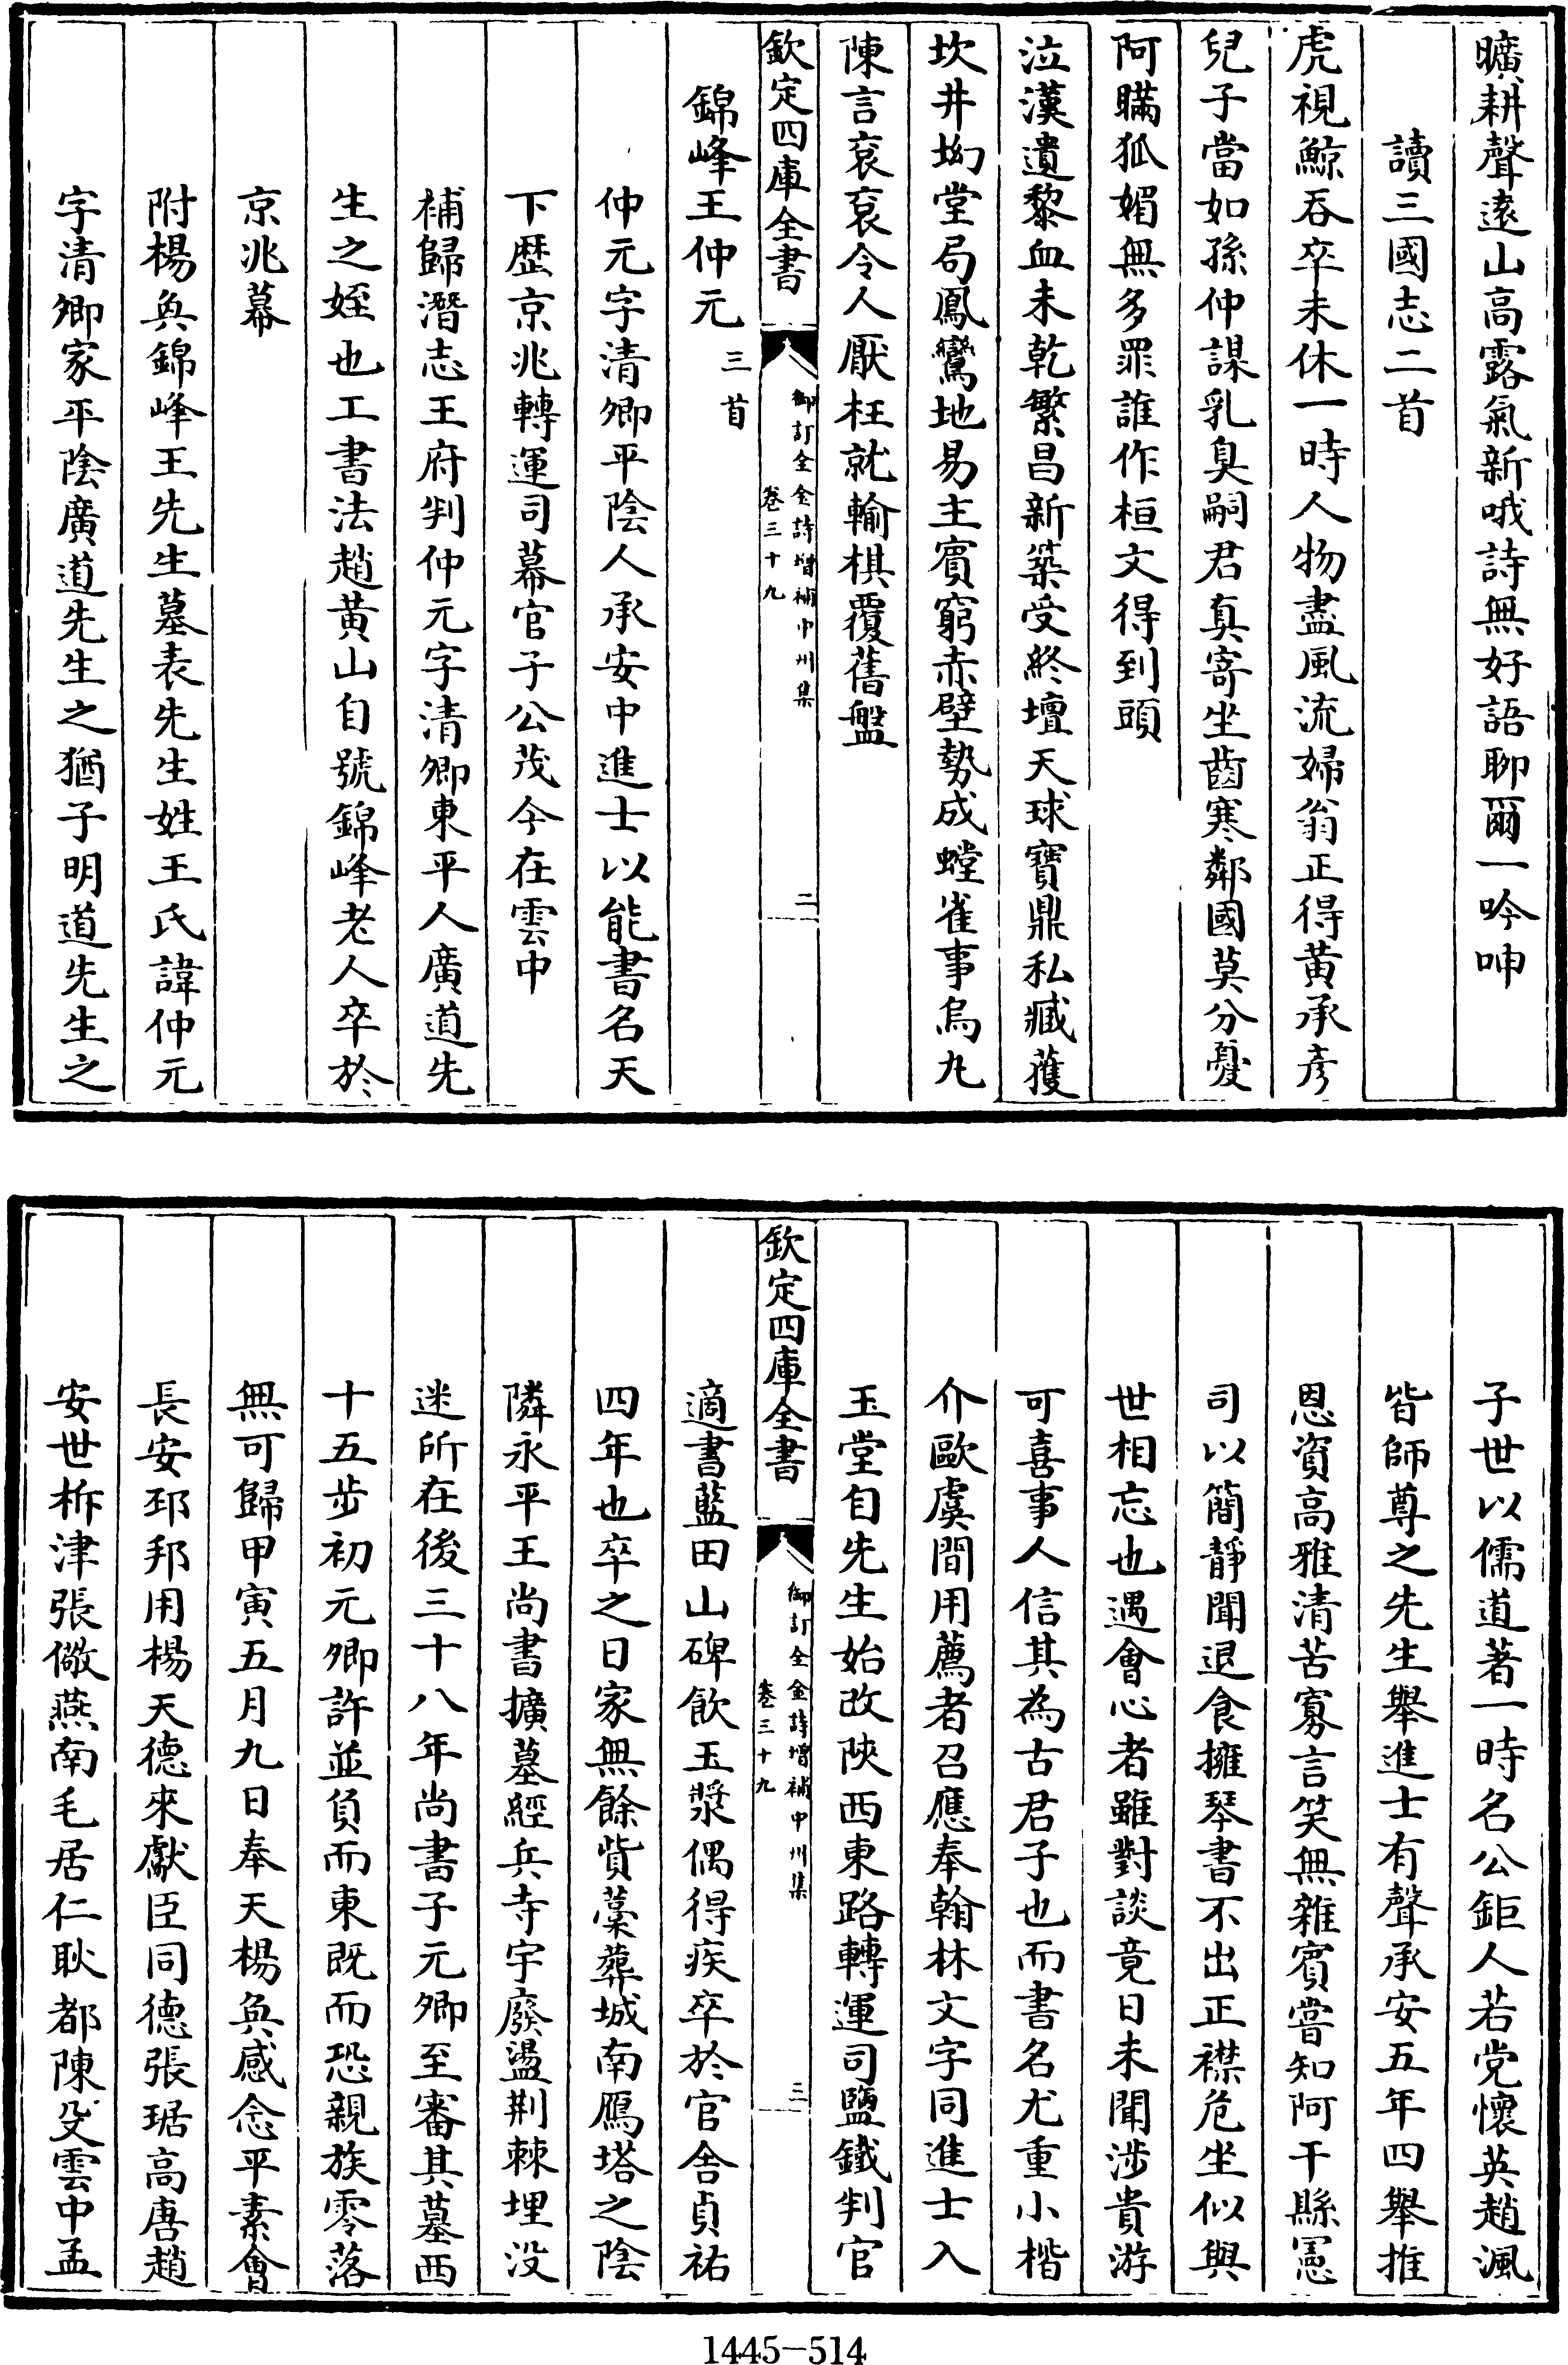 曠耕聲遠山高露氣新哦詩無好語聊爾一吟呻
讀三國志二首
虎視鯨吞卒未休一時人物盡風流婦翁正得黃承彥
兒子當如孫仲謀乳臭嗣君真寄坐齒寒鄰國莫分憂
阿瞞狐媚無多罪誰作桓文得到頭
泣漢遺黎血未乾繁昌新築受終壇天球寶鼎私臧獲
坎井坳堂局鳳鸞地易主賓窮赤壁勢成螳雀事烏丸
陳言衮衮令人厭枉就輸棋覆舊盤
欽定四庫全書
御訂全金詩增補中州集
卷三十九
二
錦峰王仲元三首
仲元字清卿平陰人承安中進士以能書名天
下歷京兆轉運司幕官子公茂今在雲中
補歸潛志王府判仲元字清卿東平人廣道先
生之姪也工書法趙黃山自號錦峰老人卒於
京兆幕
附楊奐錦峰王先生墓表先生姓王氏諱仲元
字清卿家平陰廣道先生之猶子明道先生之
子世以儒道著一時名公鉅人若党懷英趙渢
皆師尊之先生舉進士有聲承安五年四舉推
恩資高雅清苦寡言笑無雜賓嘗知阿干縣憲
司以簡靜聞退食擁琴書不出正襟危坐似與
世相忘也遇會心者雖對談竟日未聞涉貴游
可喜事人信其為古君子也而書名尤重小楷
介歐虞間用薦者召應奉翰林文字同進士入
玉堂自先生始改陜西東路轉運司鹽鐵判官
欽定四庫全書
御訂全金詩增補中州集
卷三十九
三
適書藍田山碑飲玉漿偶得疾卒於官舍貞祐
四年也卒之日家無餘貲藁葬城南鴈塔之陰
隣永平王尚書擴墓經兵寺宇廢盪荆棘埋没
迷所在後三十八年尚書子元卿至審其墓西
十五步初元卿許並負而東既而恐親族零落
無可歸甲寅五月九日奉天楊奐感念平素會
長安邳邦用楊天德來獻臣同德張琚高唐趙
安世柝津張儆燕南毛居仁耿都陳旻雲中孟
1445-514